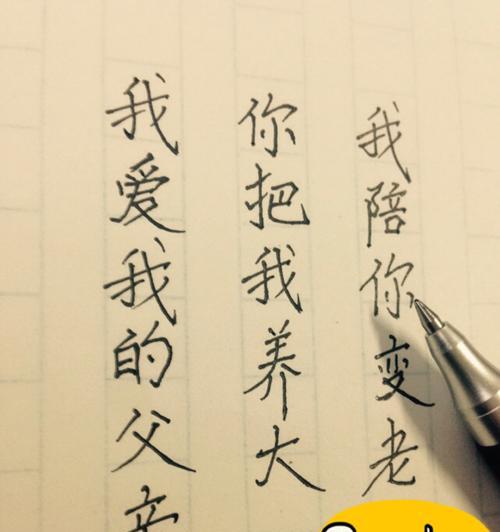 我爱我的父亲
你把我养大
我陪你变老